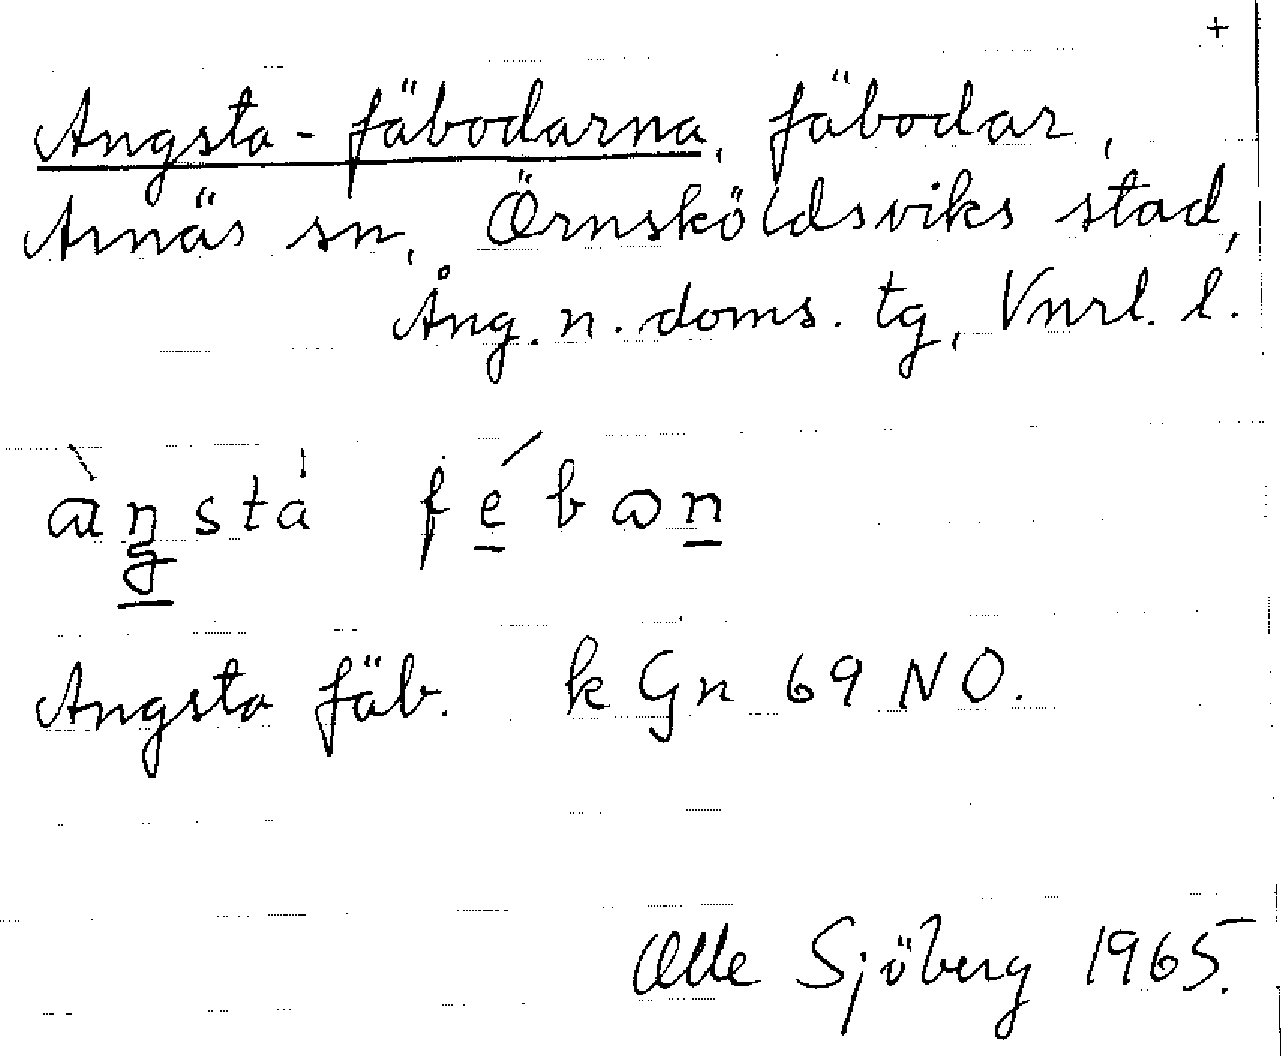 +
Angsta-fäbodarna, fäbodar,
Arnäs sn, Örnsköldsviks stad,
Ång. n. doms. tg, Vnrl. l.
Angsta fäb. k Gn 69 NO.
Olle Sjöberg 1965.